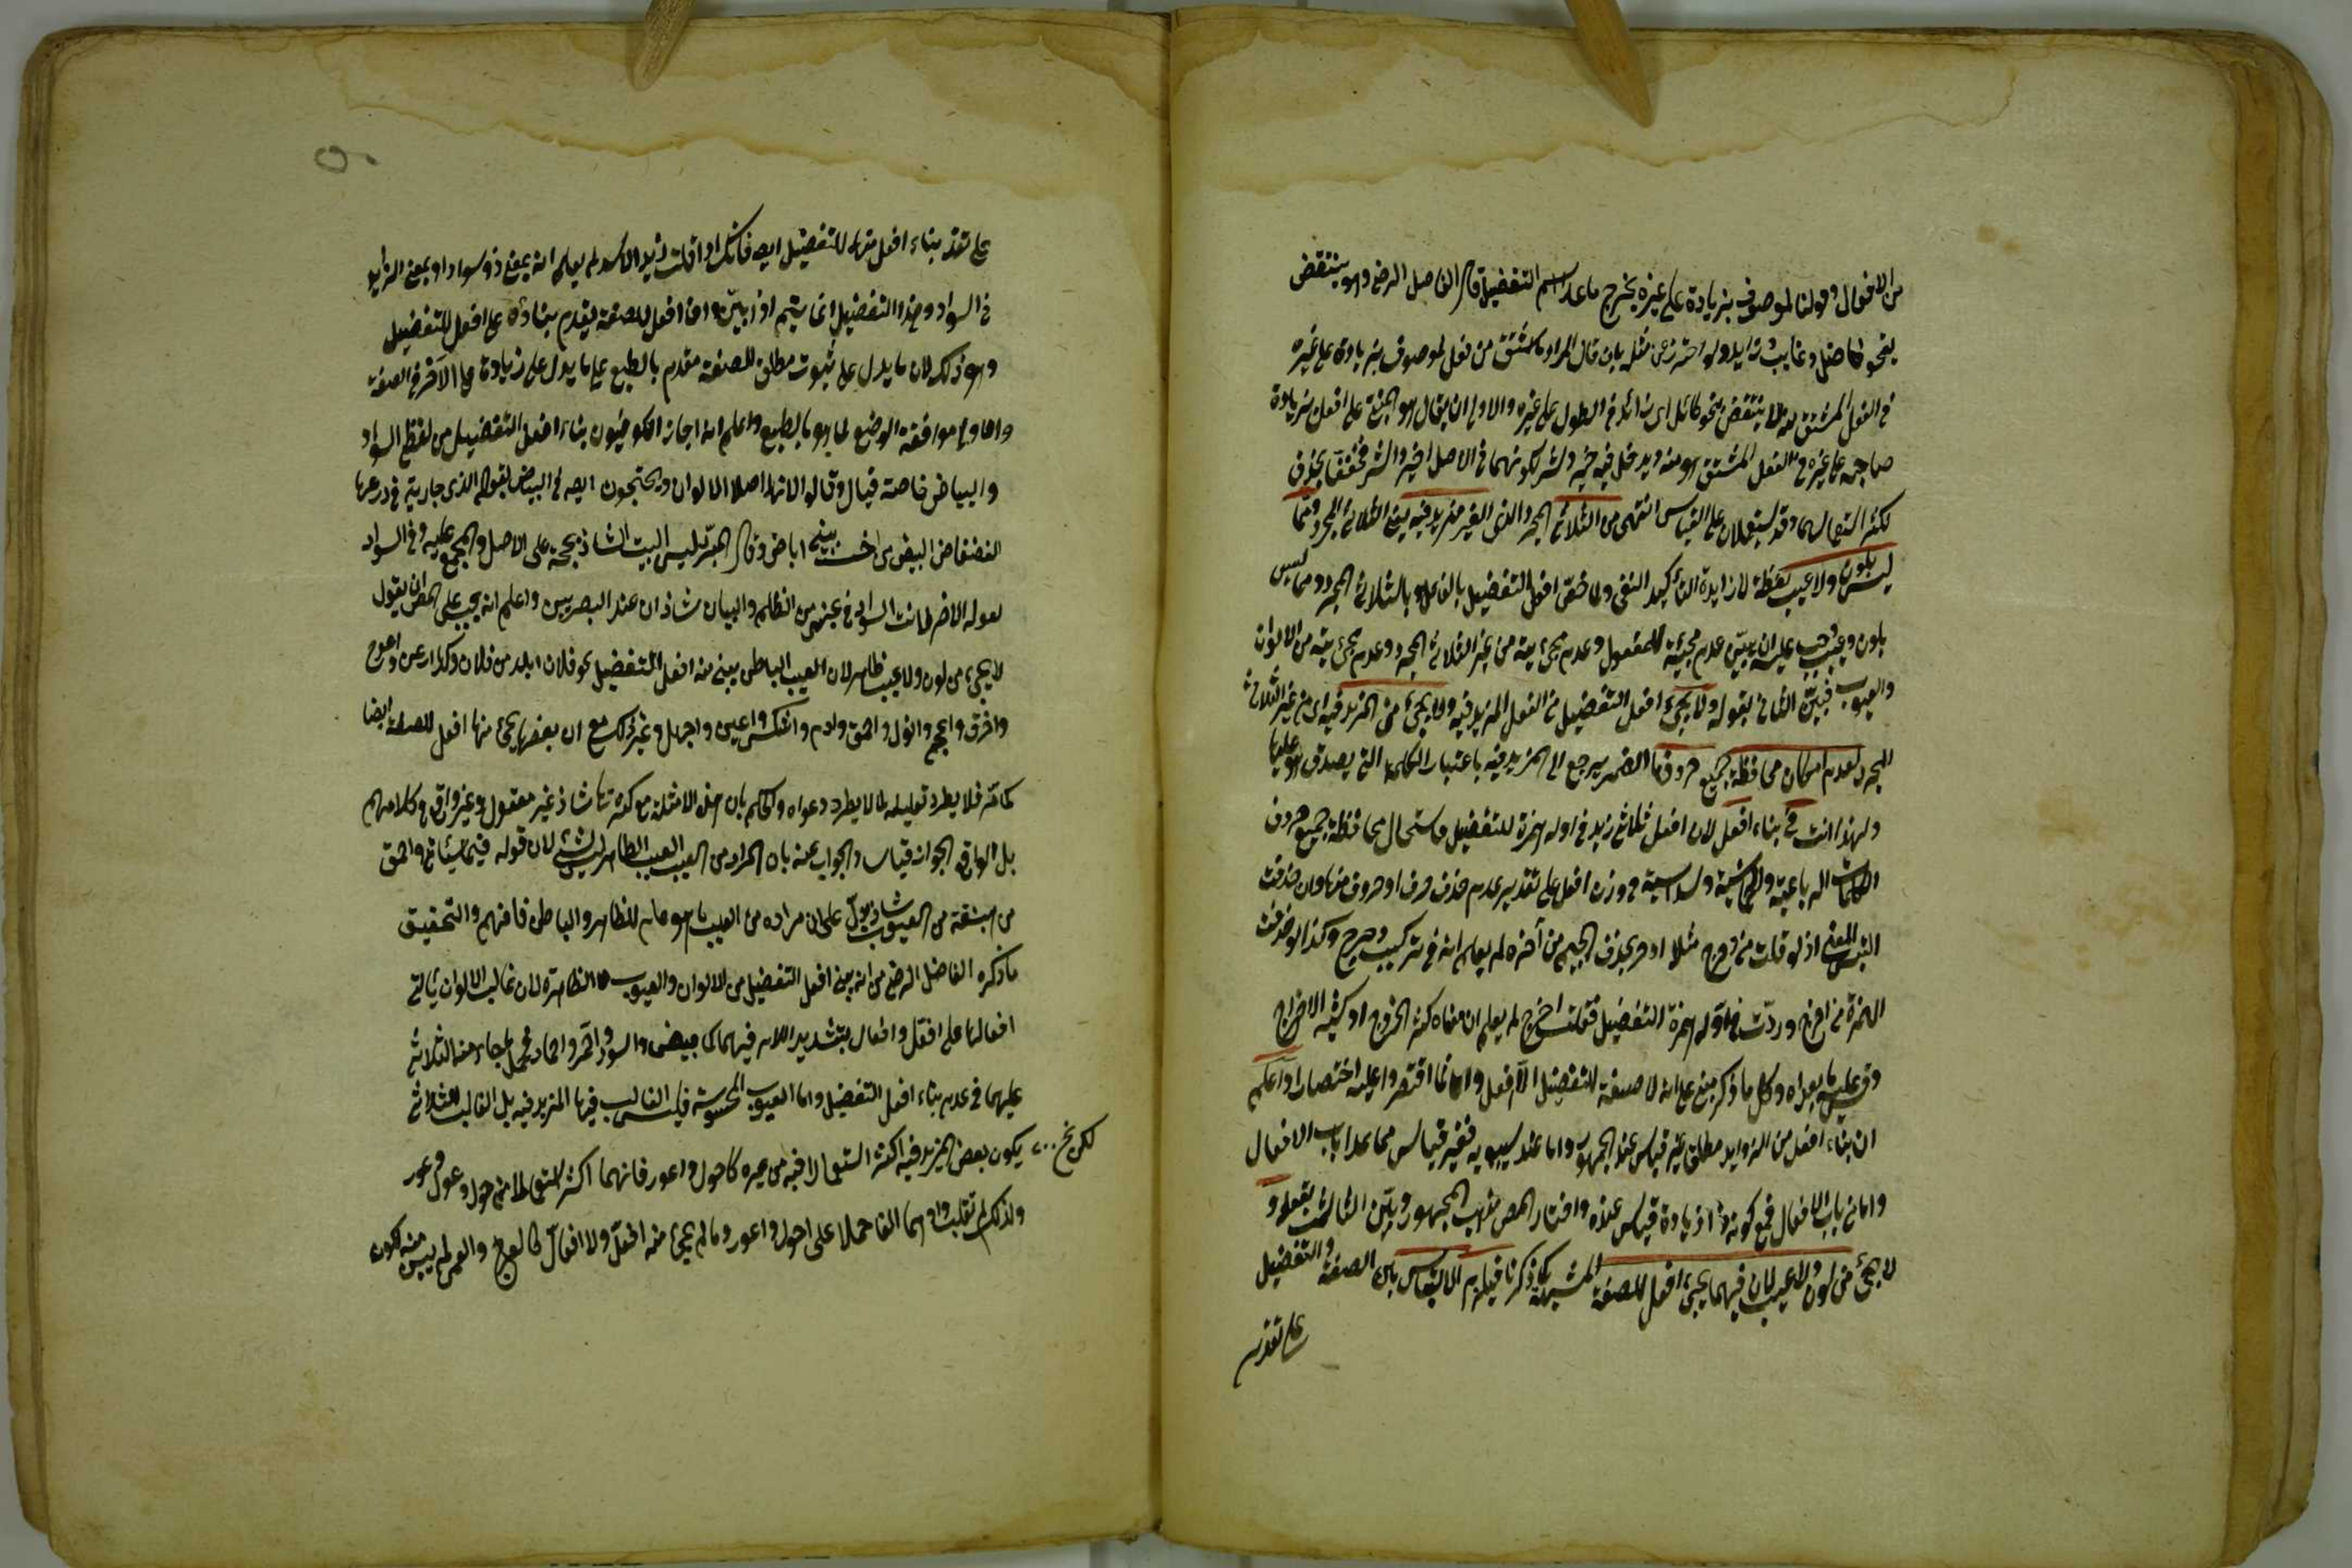 من الافعال وقولنا لموصوف بزيادة على غيره يخرج ماعدا اسم التفضيل قال الفاضل الرضى وهو ينتقض
بنحو فاضل وغالب زايد ولو احترز عن مثله بان قال المراد ما اشتق من فعل لموصوف بزيادة على غيره
في الفعل المشتق منه لا ينتقض بنحو طائل اى زائد في الطول على غيره والاولى ان يقال هو المبنى على افعل لزيادة
صاحبه على غيره في الفعل المشتق هو منه ويدخل فيه خير وشر لكونهما في الاصل اخير واشر فخففا بحذف
لكثرة استعمالهما وقد يستعملان على القياس انتهى من الثلاثى المجرد الذى الغير مزيد فيه يعنى الثلاثى المجرد مما
ليس بلون ولا عيب لفظة لا زايدة لتأكيد النفى ولما خص افعل التفضيل بالفاعل وبالثلاثى المجرد ومما ليس
بلون وعيب وجب عليه ان يبين عدم مجيئه للمفعول وعدم مجيئه من غير الثلاثى المجرد وعدم مجيئه من الالوان
والعيوب فبين الثانى بقوله ولا يجئ افعل التفضيل من الفعل المزيد فيه ولا يجئ من المزيد فيه اى من غير الثلاثى
المجرد لعدم امكان محافظة جميع حروفها الضمير يرجع الى المزيد فيه باعتبار الكلمة التى يصدق هو عليها
ولهذا انث في بناء افعل لان افعل ثلاثى زيد في اوله همزة للتفضيل واستحال محافظة جميع حروف
الكلمات الرباعية والخماسية والسداسية في وزن افعل على تقدير عدم حذف حرف او حروف منها وان حذفت
التبس المعنى اذ لو قلت من دحرج مثلا ادحر بحذف الجيم من آخره لم يعلم انه في تركيب دحرج وكذا لو حذفت
الهمزة من اخرج وردت في اوله همزة التفضيل فقلت اخرج لم يعلم ان معناه كثير الخروج او كثير الاخراج
وقس عليه ما عداه وكل ما ذكر مبنى على انه لا صيغة للتفضيل الا افعل وانما اقتصروا عليه اختصارا واعلم
ان بناء افعل من الزوايد مطلق غير قياس عند الجمهور واما عند سيبويه فغير قياس مما عدا باب الافعال
واما من باب الافعال فمع كونه ذا زيادة قياس عنده واختار المص مذهب الجمهور وبين الثالث بقوله و
لا يجئ من لون ولا عيب لان فيهما يجئ افعل للصفة المشبهة كما ذكرنا فيلزم الالتباس بين الصفة والتفضيل
على تقدير
على تقدير بناء افعل منهما للتفضيل ايضا فانك اذا قلت زيد الاسود لم يعلم انه بمعنى ذو سواد او بمعنى الزايد
في السواد وهذا التفضيل انما يتم اذا بين ان افعل للصفة يقدم بناؤه على افعل للتفضيل
وهو ذلك لان ما يدل على ثبوت مطلق الصفة مقدم بالطبع على ما يدل على زيادة على الآخر في الصفة
والاولى موافقة الوضع لما هو بالطبع واعلم انه اجاز الكوفيون بناء افعل التفضيل من لفظى السواد
والبياض خاصة قياسا وقالوا لانهما اصلا الالوان ويحتجون ايضا في البياض بقوله الذى جارية في درعها
الفضفاض ابيض من اخت بنى اباض وقال المبرد ليس البيت الشاذ بحجة على الاصل والمجمع عليه وفي السواد
بقوله لانت اسود في عينى من الظلم والبيتان شاذان عند البصريين واعلم انه يجب على المص ان يقول
لا يجئ من لون ولا عيب ظاهر لان العيب الباطن يبنى منه افعل التفضيل نحو فلان ابلد من فلان وكذا ارعن واهوج
واخرق واعجم وانول واحمق والدم واشكس واعيى واجهل وغير ذلك مع ان بعضها يجئ منها افعل للصفة ايضا
كاحمق فلا يطرد تعليله لما لا يطرد دعواه والحكم بان هذه الامثلة مع كثرتها شاذ غير معقول وغير واقع في كلامهم
بل الواقع الجواز قياسا والجواب عنه بان المراد من العيب العيب الظاهر ليس بشئ لان قوله فيما سيأتى واحمق
من هبنقة من العيوب شاذ يدل على ان مراده من العيب ما هو عام للظاهر والباطن فافهم والتحقيق
ما ذكره الفاضل الرضى من انه لم يبن افعل التفضيل من الالوان والعيوب الظاهرة لان غالب الالوان يأتى
افعالها على افعل وافعال بتشديد اللام فيهما كابيض واسود واحمر واحمار فحمل ما جاء منه الثلاثى
عليهما في عدم بناء افعل التفضيل واما العيوب المحسوسة فليس الغالب فيها المزيد فيه بل الغالب الثلاثى
لكن يخ يكون بعض المزيد فيه اكثر استعمالا فيه من غيره كاحول واعور فانهما اكثر استعمالا من حول وعور
ولذلك لم تقلب واوهما الفا حملا على احول واعور وما لم يجئ منه افعل ولا افعال كالعرج والعمى لم يبن منه لكون